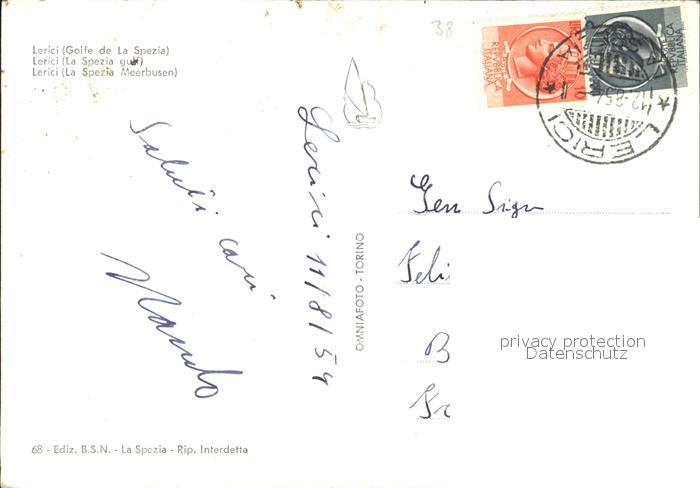 38
Lerici (Golfe de La Spezia)
Lerici (La Spezia gulf)
Lerici (La Spezia Meerbusen)
REPVBBLICA
ITALIANA
LERICI
Lerici 11/8/54
Saluti cari
Nando
OMNIAFOTO - TORINO
Gen Sign
Feli
B
Fr
privacy protection
Datenschutz
68 - Ediz. B.S.N. - La Spezia - Rip. Interdetta